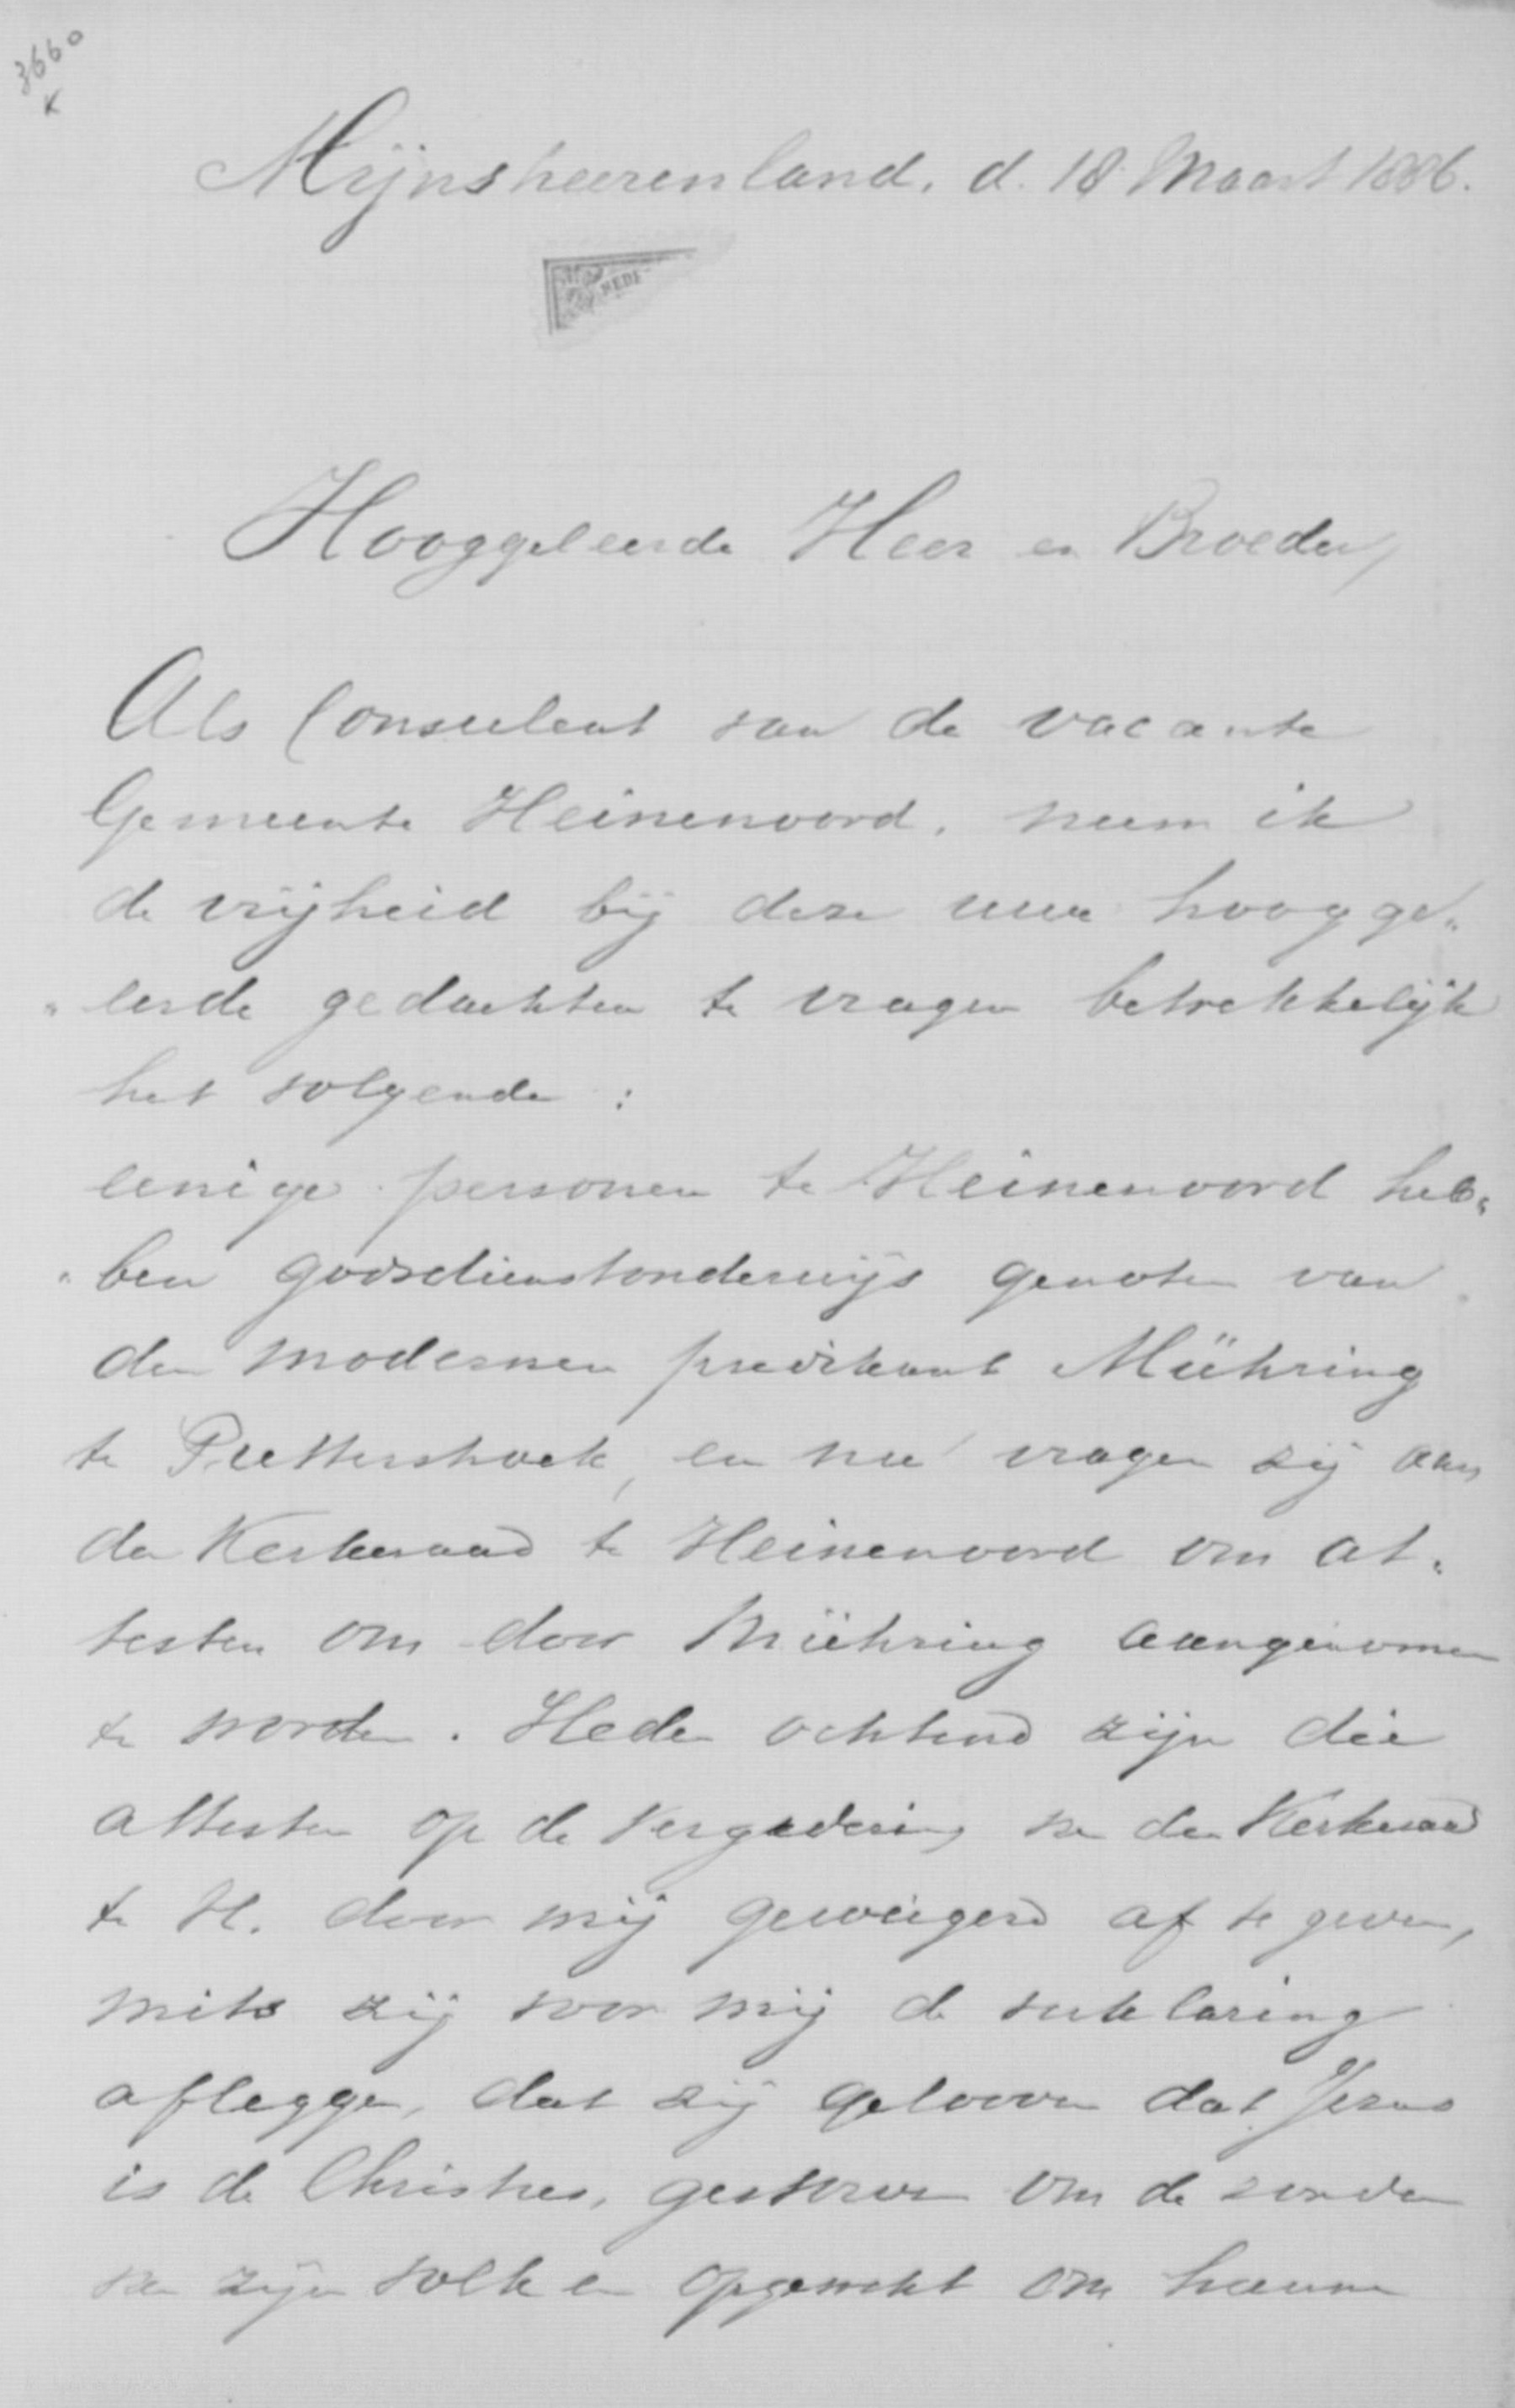 3660
K
Mijnsheerenland, d. 18 Maart 1886.
NEDE
Hooggeleerde Heer en Broeder,
Als Consulent van de vacante
Gemeente Heinenoord, neem ik
de vrijheid bij deze uwe hoogge„
„leerde gedachten te vragen betrekkelijk
het volgende :
eenige personen te Heinenoord heb„
„ben godsdienstonderwijs genoten van
den modernen predikant Mühring
te Puttershoek, en nu vragen zij aan
den Kerkeraad te Heinenoord om at„
testen om door Mühring aangenomen
te worden. Heden ochtend zijn die
attesten op de vergadering van den Kerkeraad
te H. door mij geweigerd af te geven,
mits zij voor mij de verklaring
afleggen, dat zij gelooven dat Jezus
is de Christus, gestorven om de zonden
van zijn volk en opgewekt om hunne